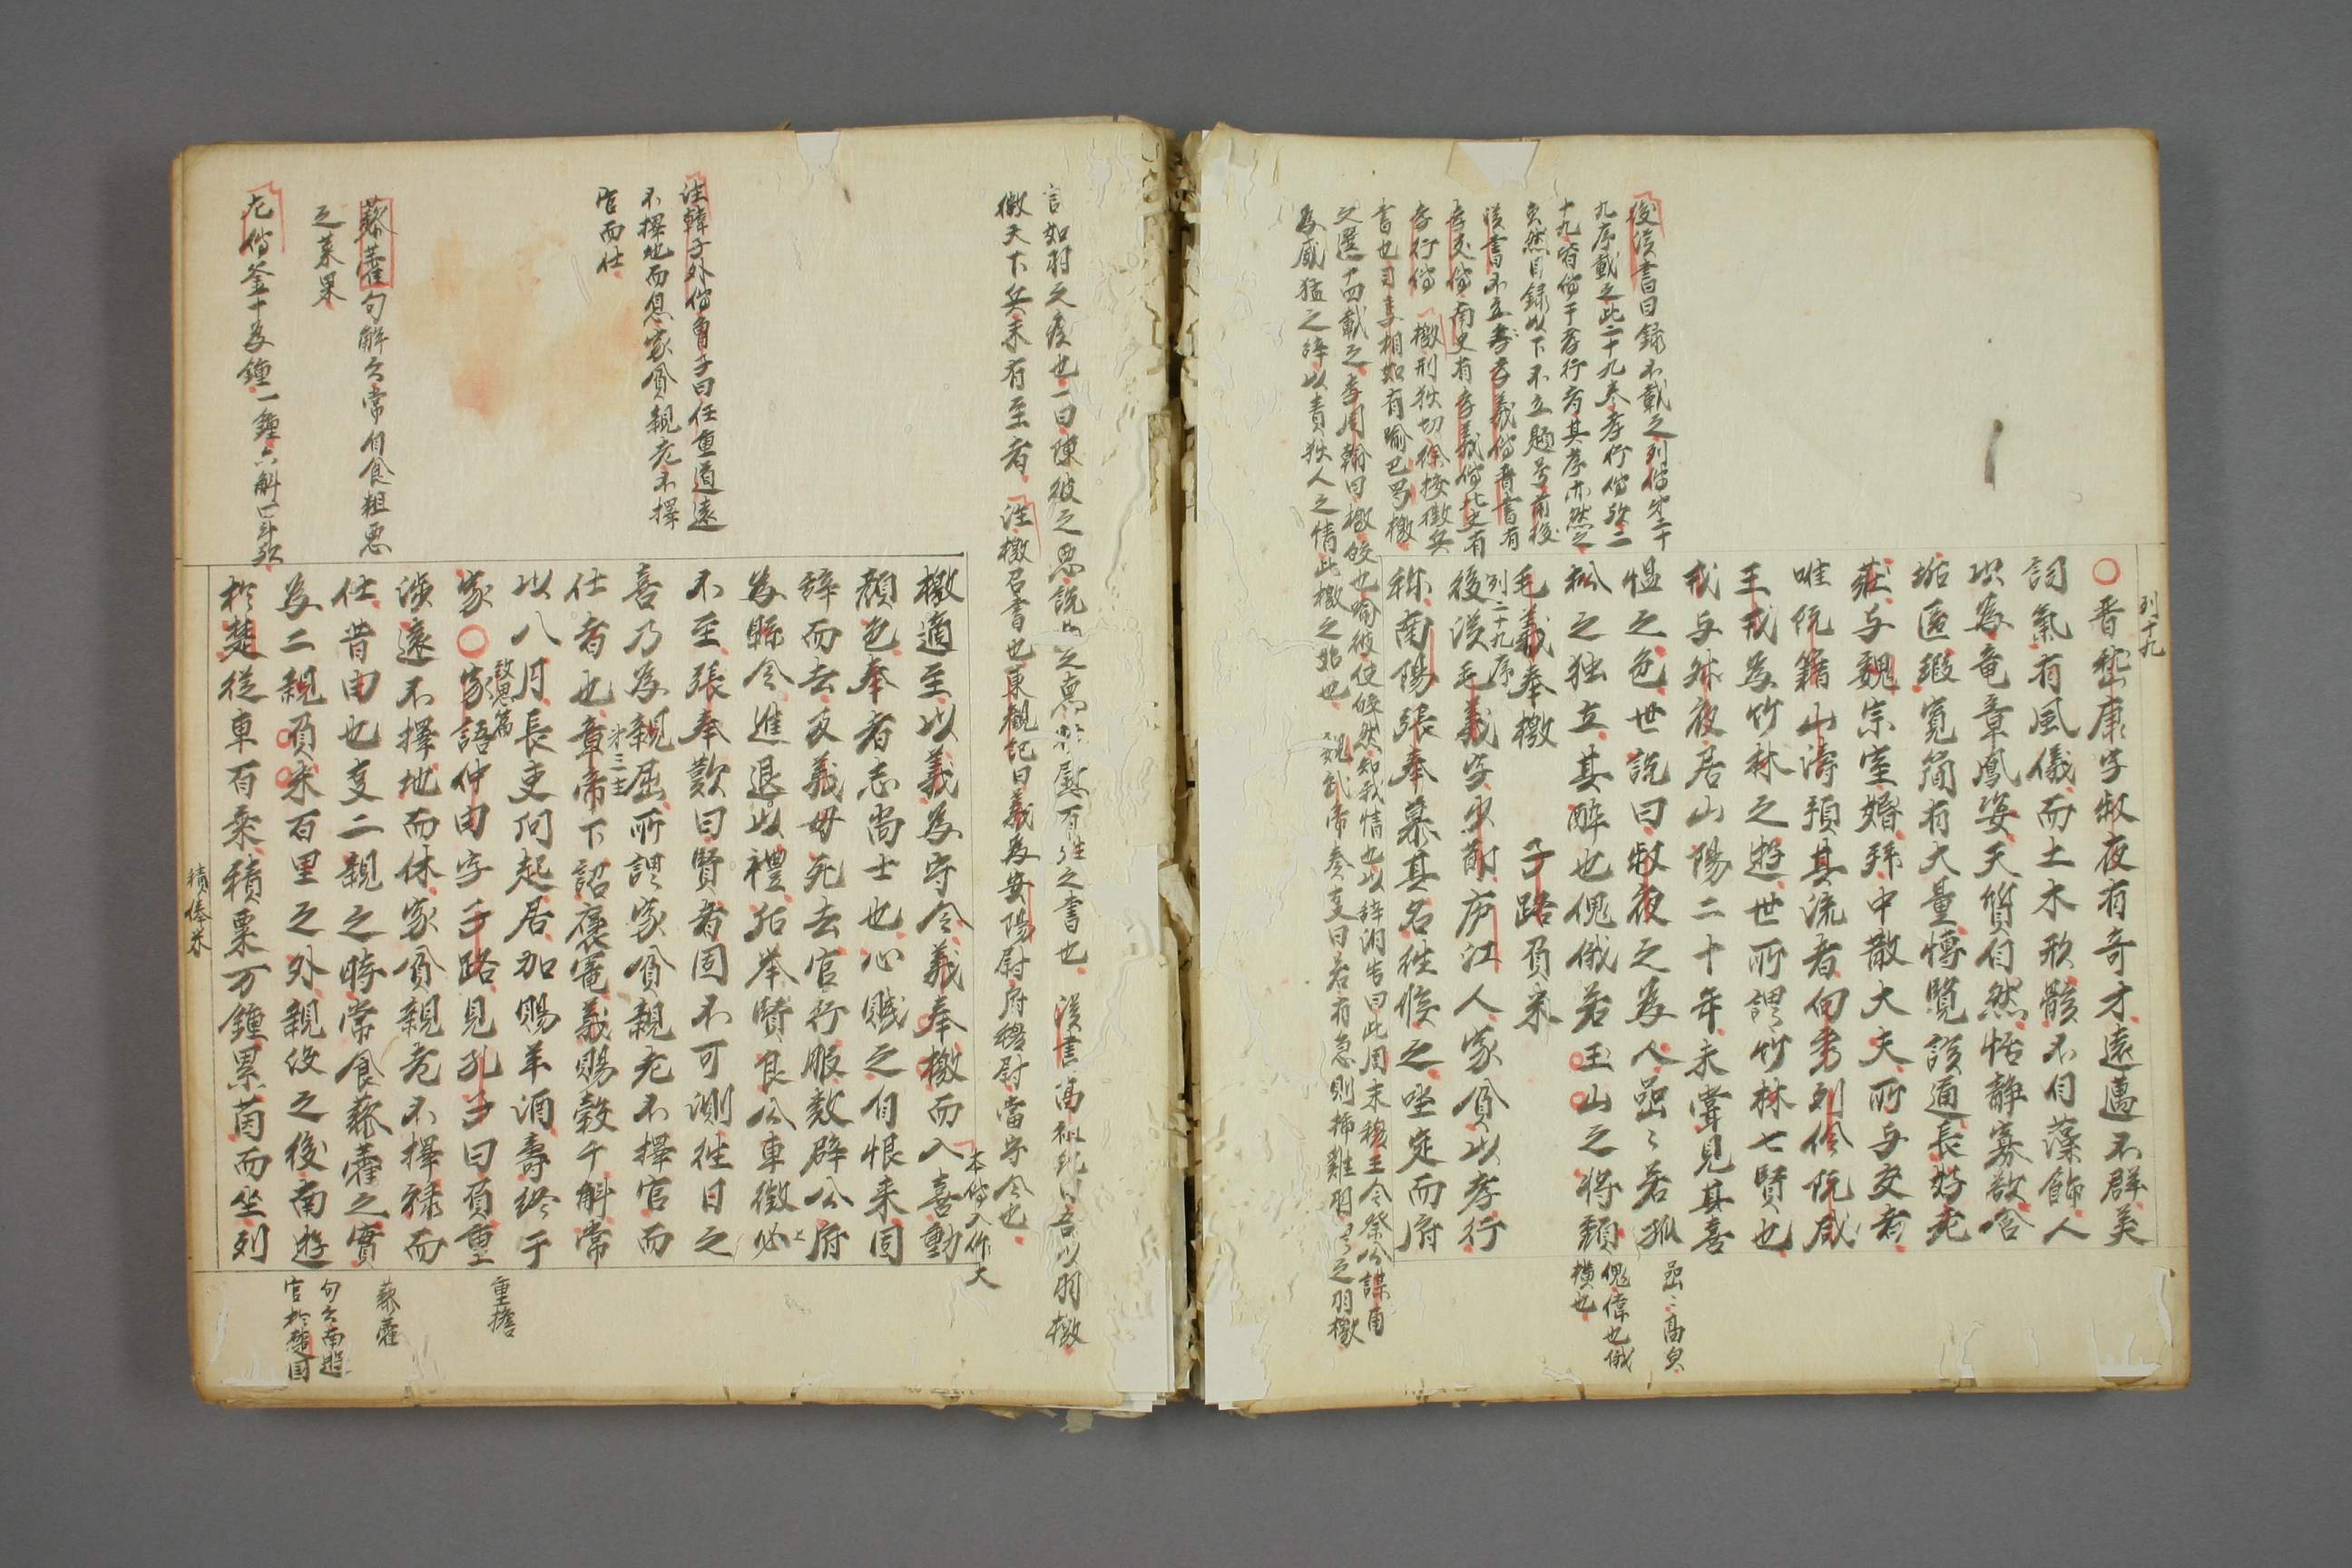 列十九
○晋嵆康字叔夜有奇才遠邁不群美
詞氣有風儀而土木形骸不自藻飾人
以為竜章鳳姿天質自然恬静寡欲含
垢匿瑕寛簡有大量博覧該通長好老
莊与魏宗室婚拜中散大夫所与交者
唯阮籍山濤預其流者向秀列伶阮咸
王戎為竹林之遊世所謂竹林七賢也
戎与叔夜居山陽二十年未嘗見其喜
愠之色世説曰叔夜之為人嵒〻若孤
松之独立其酔也傀俄若玉山之将頽
毛義奉檄　子路負米
列二十九序
後漢毛義字少莭庐江人家貧以孝行
称南陽張奉慕其名徃候之坐定而府
嵒〻高皃
傀偉也俄
横也
後漢書目録不載之列傳第二十
九序載之此二十九巻孝行傳欤二
十九皆傳干孝行者其序亦然之
皃然目録以下不立題号前後
漢書不立孝義傳晋書有
孝友傳南史有孝義傳北史有
孝行傳　檄刑狄切徐按檄矣
書也司馬相如有喩巴蜀檄
文選十四載之李周翰曰檄皎也喩彼使皎然知我情也以辞洎告曰此周末穆王令祭公謀甫
為威猛之辞以責狄人之情此檄之始也　魏武帝奏事曰若有急則揷雞羽
言如羽之疾也一曰陳彼之悪説此之恵
檄天下兵未有至者　注檄召書也東観記曰義為安陽尉府檄尉當守令也
檄適至以義為守令義奉檄而入喜動
本傳入作大
顔色奉者志尚士也心賎之自恨来固
辞而去及義母死去官行服数辟公府
為縣令進退必以禮後挙賢良公車徴必
不至張奉歎曰賢者固不可測徃日之
喜乃為親屈所謂家貧親老不擇官而
仕者也章帝下詔褒寵義賜穀千斛常
第三主
以八月長吏问起居加賜羊酒壽終于
家○家語仲由字子路見孔子曰負重
致思篇
渉遠不擇地而休家貧親老不擇禄而
仕昔由也事二親之時常食藜藿之實
為二親負米百里之外親没之後南遊
於楚從車百乗積粟万鍾累茵而坐列
積俸米
注韓子外傳曽子曰任重道遠
不擇地而息家貧親老不擇
官而仕
藜藿句解云常自食粗悪
之菜果
左傳釜十為鍾一鍾六斛四斗欤
重擔
藜藿
句云南遊
官於楚国